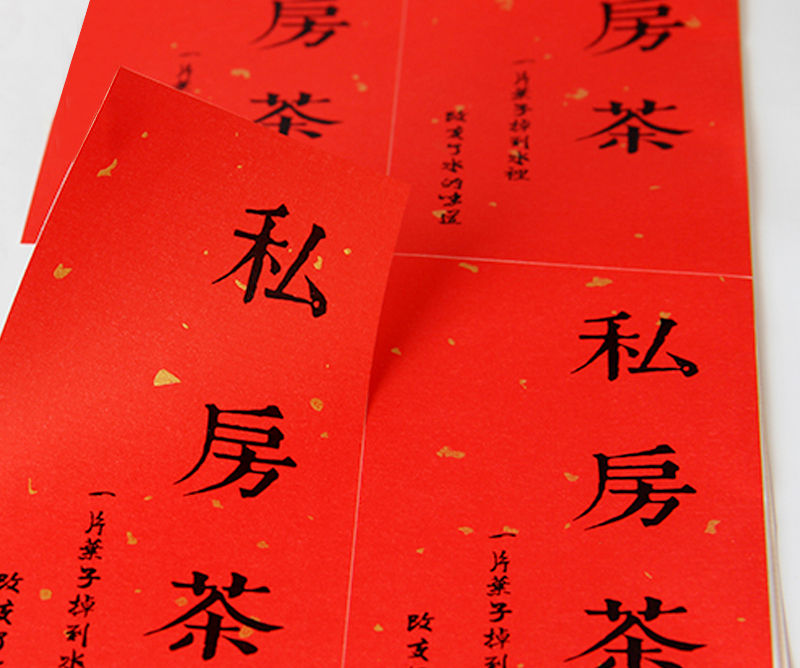 房茶
一片
房茶
一片葉子掉到水裡
改变了水的味道
私房茶
一片葉子掉到水
改变了
私房茶
一片葉子掉到
改变